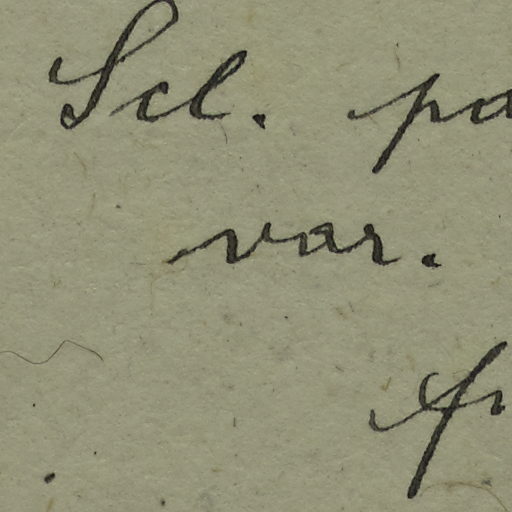 Scl. pa
var.